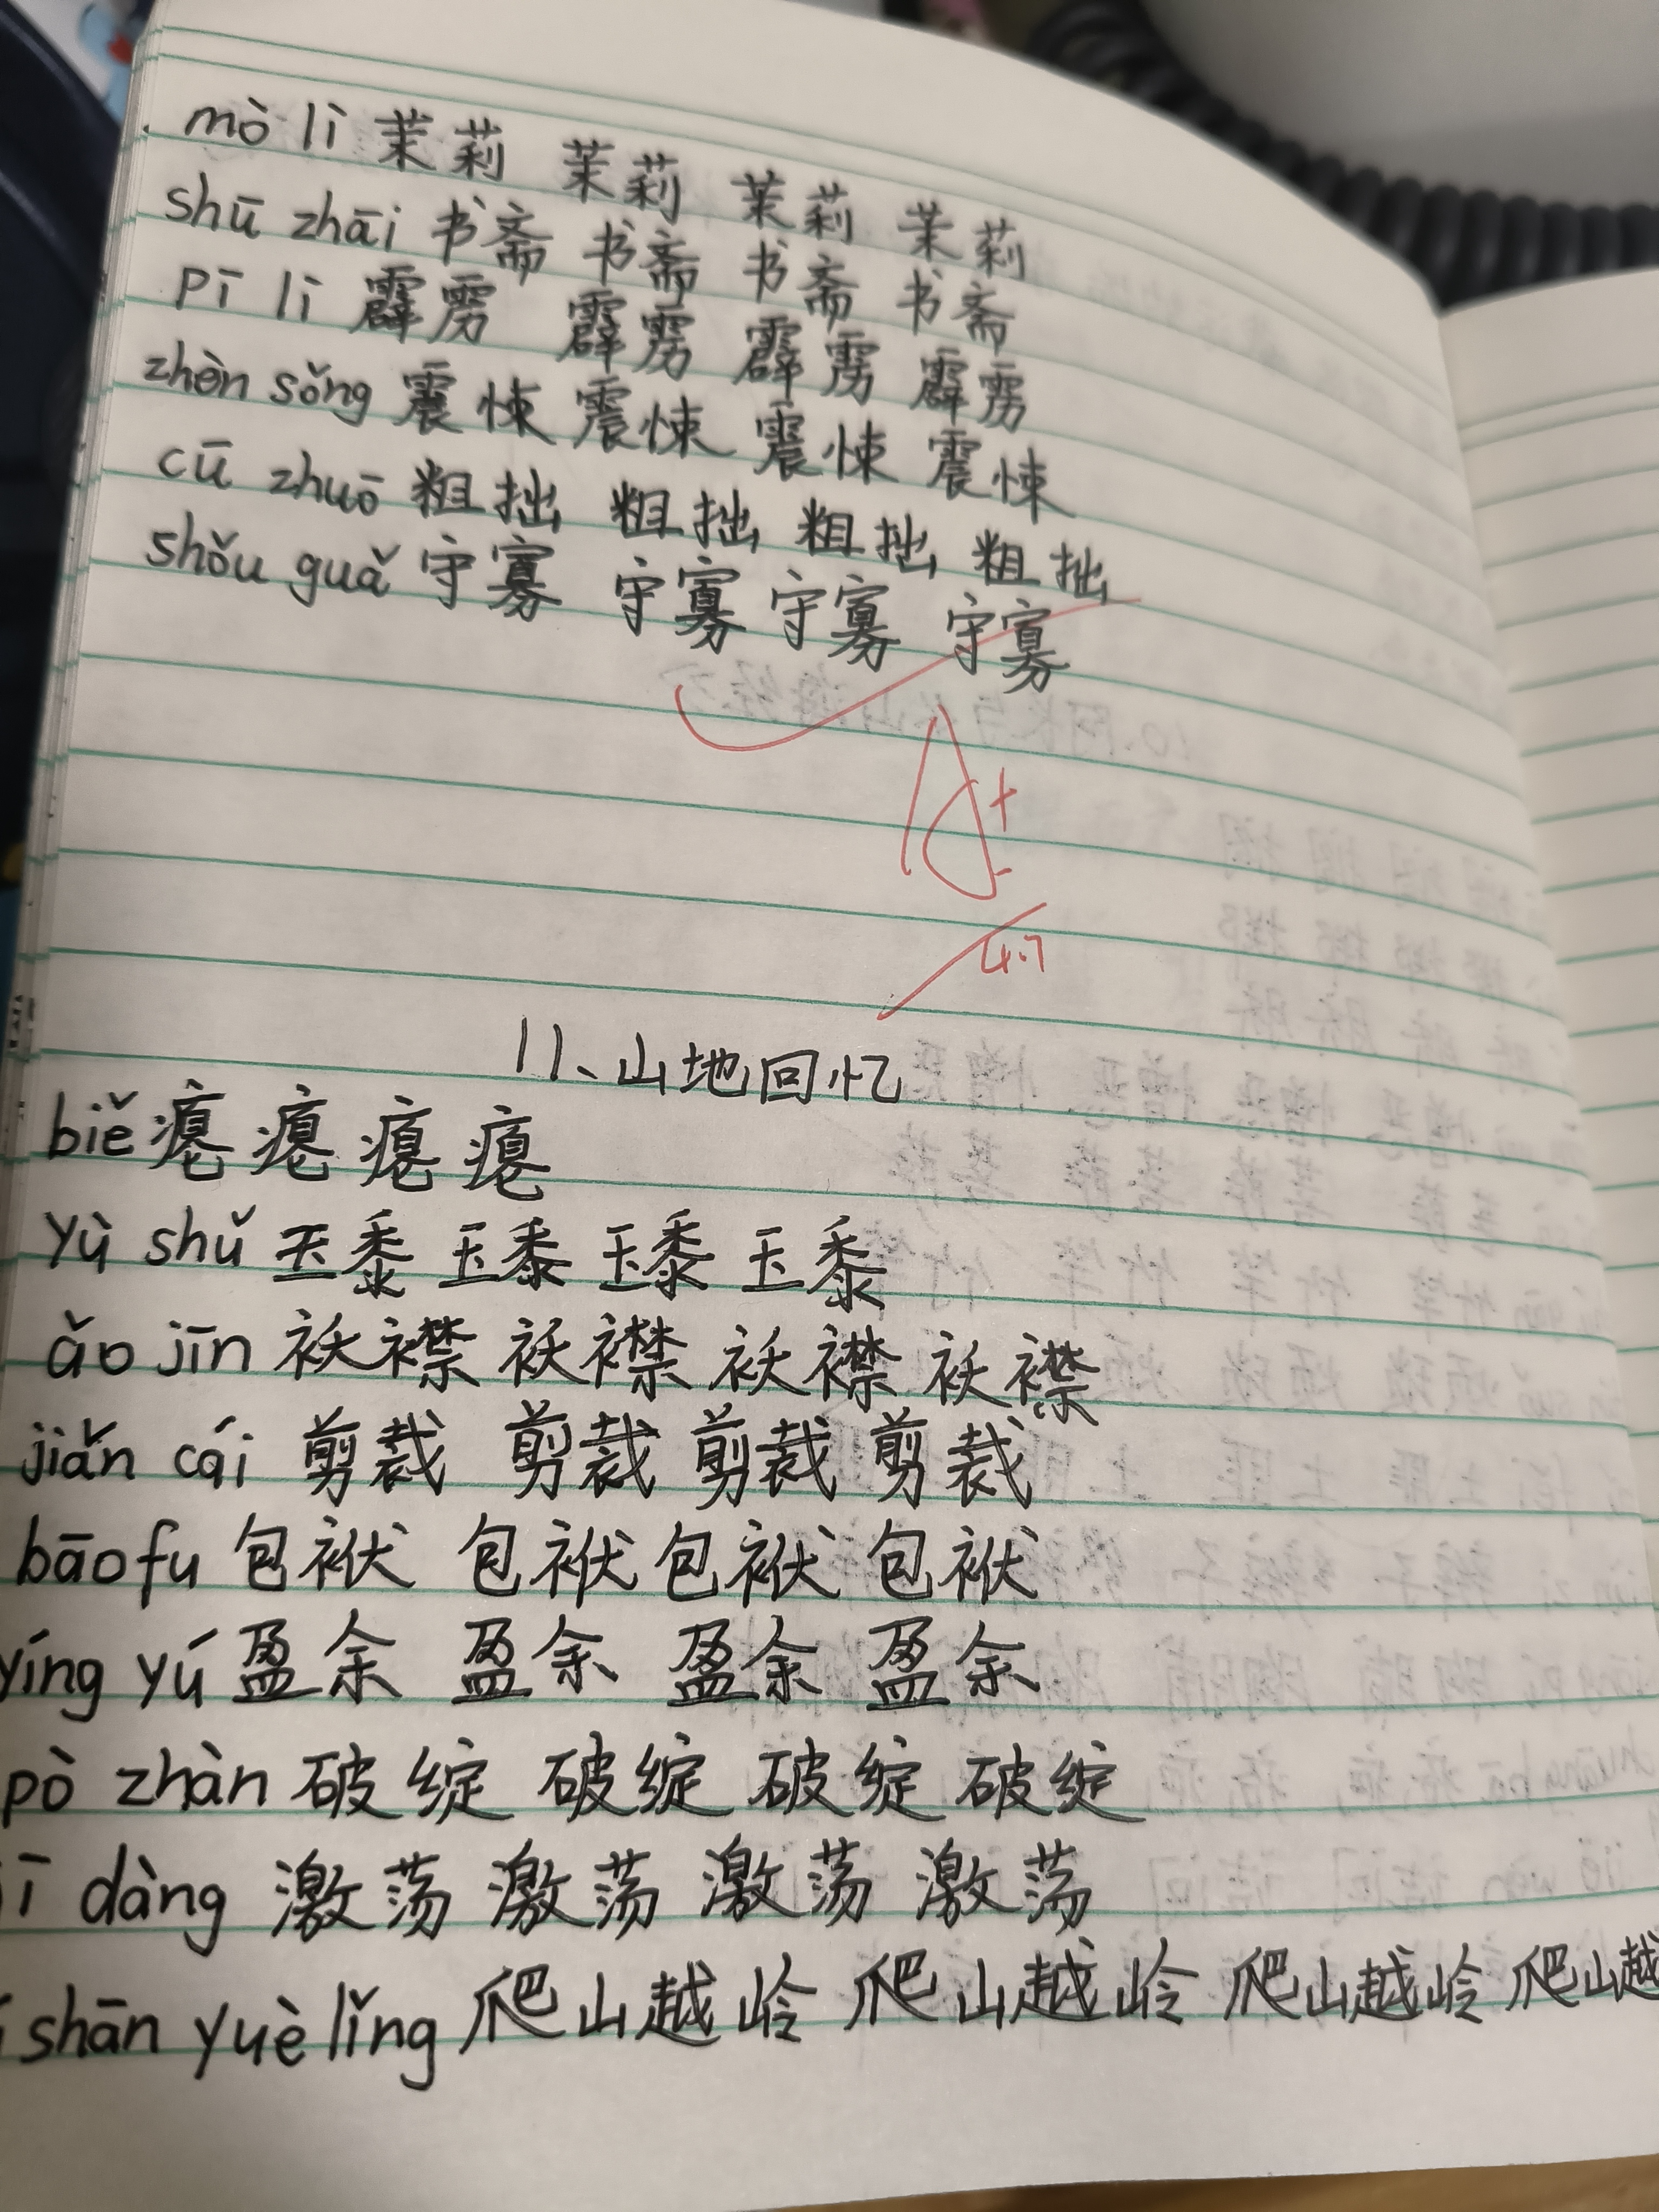 mò lì 茉莉 茉莉 茉莉 茉莉
shū zhāi 书斋 书斋 书斋 书斋
pī lì 霹雳 霹雳 霹雳 霹雳
zhèn sǒng 震悚 震悚 震悚 震悚
cū zhuō 粗拙 粗拙 粗拙 粗拙
shǒu guǎ 守寡 守寡 守寡 守寡
A+
4.7
11、山地回忆
biě
yù shǔ 玉黍 玉黍 玉黍 玉黍
ǎo jīn 袄襟 袄襟 袄襟 袄襟
jiǎn cái 剪裁 剪裁 剪裁 剪裁
bāo fu 包袱 包袱 包袱 包袱
yíng yú 盈余 盈余 盈余 盈余
pò zhàn 破绽 破绽 破绽 破绽
ī dàng 激荡 激荡 激荡 激荡
shān yuè lǐng 爬山越岭 爬山越岭 爬山越岭 爬山越